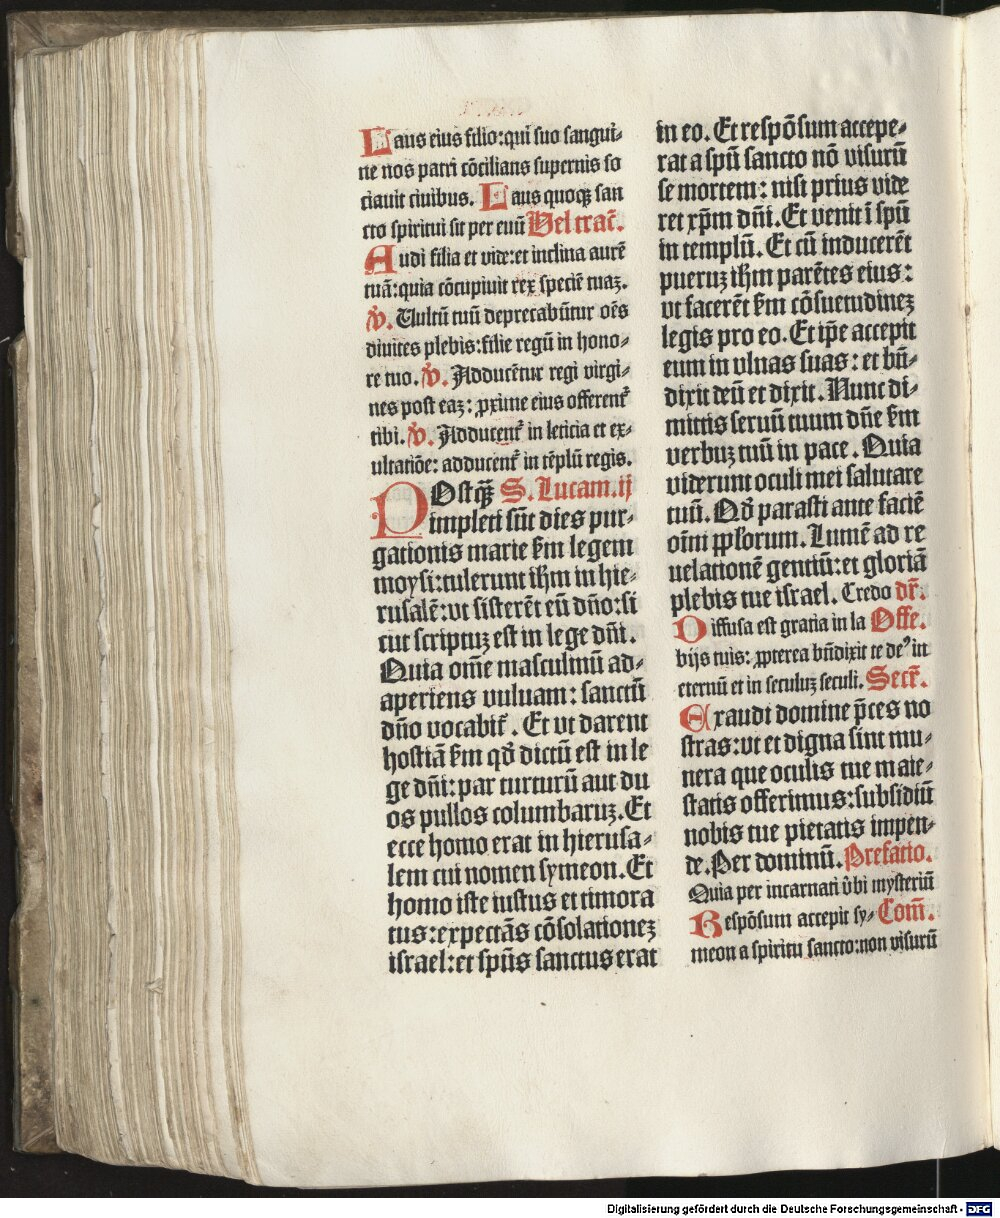 Laus eius filio:qui suo sangui-
ne nos patri cōcilians supernis so
ciauit ciuibus. Laus quoqꝫ san
cto spiritui sit per euū Vel trac̄.
Audi filia et vide:et inclina aurē
tuā:quia cōcupiuit rex speciē tuaꝫ.
℣. Vultū tuū deprecabūtur oēs
diuites plebis:filie regū in hono-
re tuo. ℣. Adducētur regi virgi-
nes post eaꝫ: ꝓxime eius offerent᷑
tibi. ℣. Adducent᷑ in leticia et ex-
ultatiōe: adducent᷑ in tēplū regis.
POstqꝫ̄ S. Lucam. ij
impleti sūt dies pur-
gationis marie ẜm legem
moysi:tulerunt ihm̄ in hie-
rusalē:vt sisterēt eū dn̄o:si
cut scriptuꝫ est in lege dn̄i.
Quia om̄e masculinū ad-
aperiens vuluam: sanctū
dn̄o vocabit᷑. Et vt darent
hostiā ẜm qd̄ dictū est in le
ge dn̄i:par turturū aut du
os pullos columbaruꝫ. Et
ecce homo erat in hierusa-
lem cui nomen symeon. Et
homo iste iustus et timora
tus:expectās cōsolationeꝫ
israel:et spūs sanctus erat
in eo. Et respōsum accepe-
rat a spū sancto nō visurū
se mortem: nisi prius vide
ret xp̄m dn̄i. Et venit ī spū
in templū. Et cū inducerēt
pueruꝫ ihm̄ parētes eius:
vt facerēt ẜm cōsuetudineꝫ
legis pro eo. Et ip̄e accepit
eum in vlnas suas: et bn̄-
dixit deū et dixit. Nunc di-
mittis seruū tuum dn̄e ẜm
verbuꝫ tuū in pace. Quia
viderunt oculi mei salutare
tuū. Qd̄ parasti ante faciē
oīm pp̄lorum. Lumē ad re
uelationē gentiū:et gloriā
plebis tue israel. Credo dr̄.
Diffusa est gratia in la Offe.
bijs tuis: ꝓpterea bn̄dixit te deꝰ in
eternū et in seculuꝫ seculi. Secr̄.
Exaudi domine p̄ces no
stras:vt et digna sint mu-
nera que oculis tue maie-
statis offerimus:subsidiū
nobis tue pietatis impen-
de. Per dominū. Prefatio.
Quia per incarnati v̂bi mysteriū
Respōsum accepit sy- Com̄.
meon a spiritu sancto:non visurū
Digitalisierung gefördert durch die Deutsche Forschungsgemeinschaft - DFG